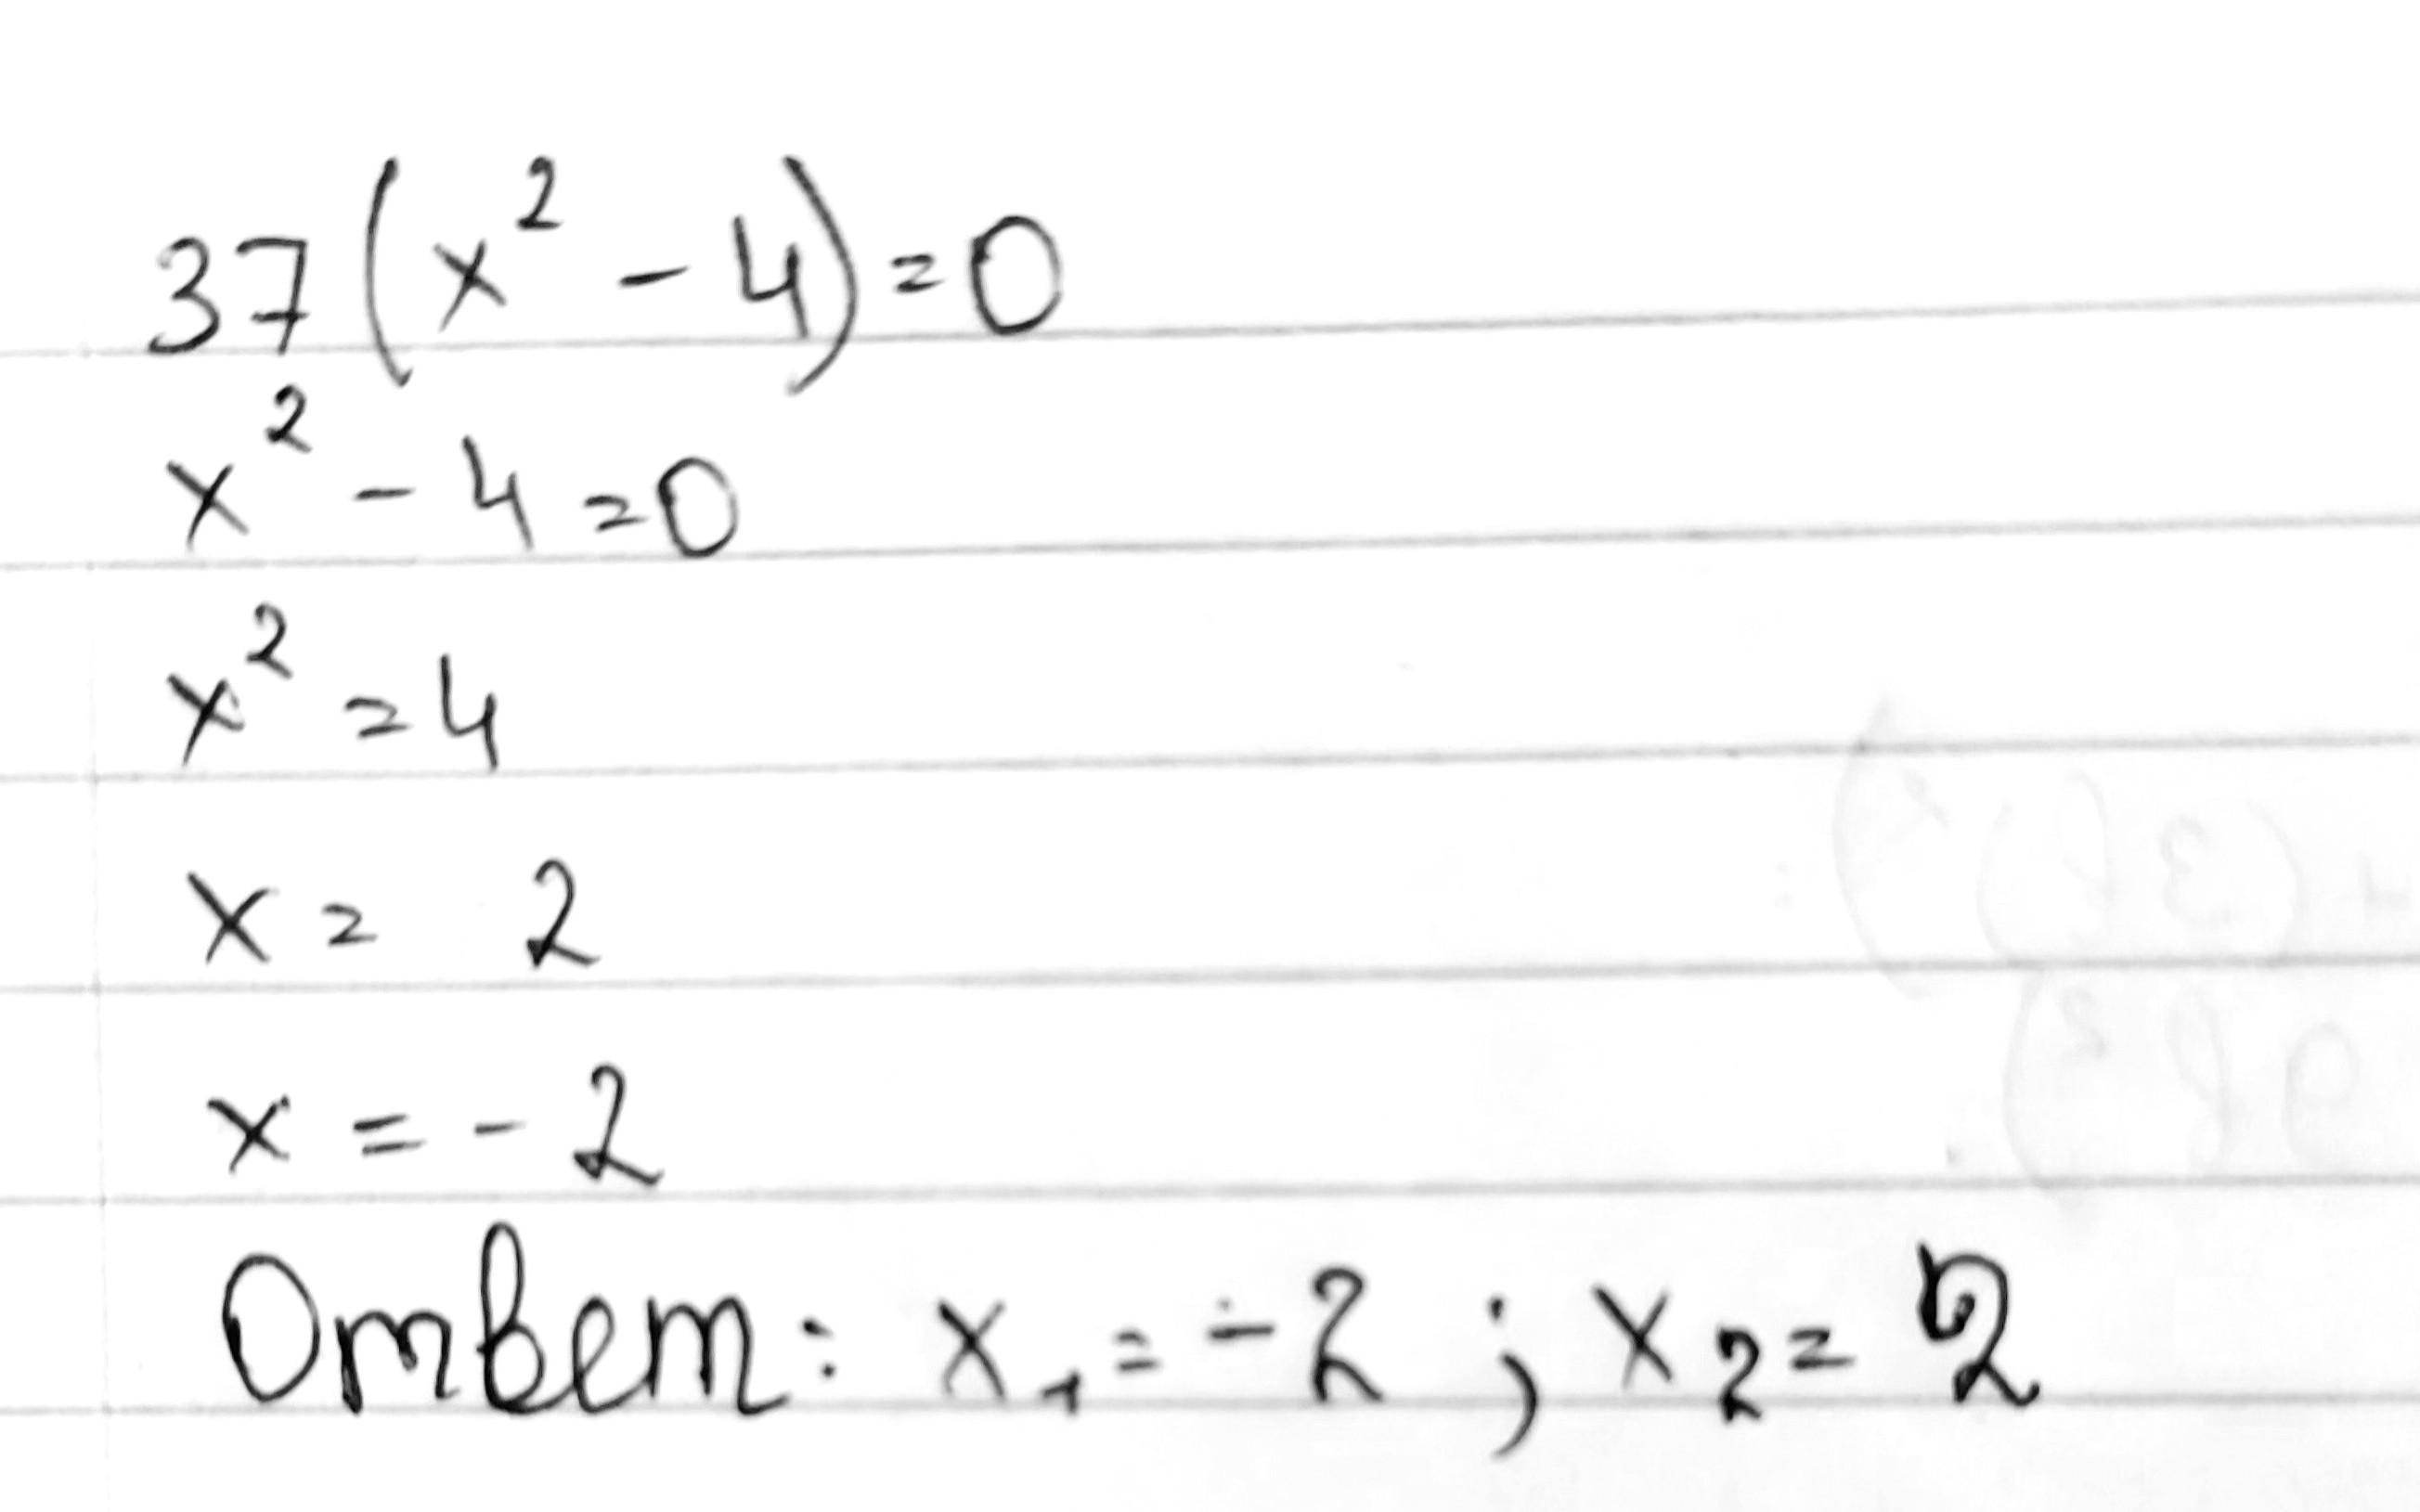 37(x² - 4) = 0
x² - 4 = 0
x² = 4
x = 2
x = - 2
Ответ: x₁ = -2 ; x₂ = 2